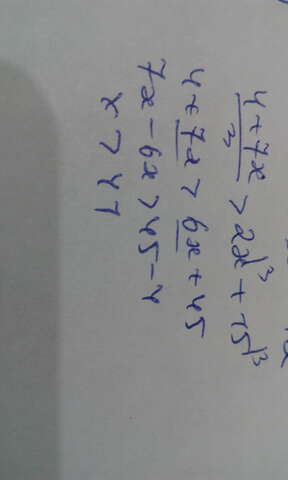 4+7x/3 > 2x|³ + 15|³
4+7x > 6x+45
7x-6x > 45-4
x > 41